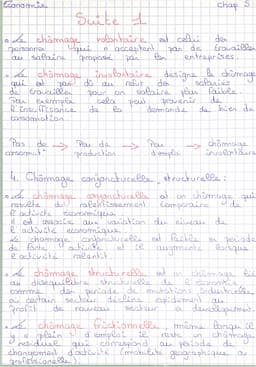 Economie chap 5
Suite 1
• Le chômage volontaire est celui des
personnes qui n'acceptent pas de travailler
au salaire proposé par les entreprises.
• Le chômage involontaire designe le chômage
qui est pas dû au refus des salariés
de travailler pour un salaire plus faible.
Par exemple cela peut provenir de
l'insuffisance de la demande de bien de
consommation
Pas de → Peu de → Peu → chômage
consommat° production d'emploi involontaire
4. Chômage conjoncturelle, structurelle :
• Le chômage conjoncturelle est un chômage qui
résulte du ralentissement temporaire de
l'activité économique.
Il est associé aux variation du niveau de
l'activité économique.
Le chômage conjoncturelle est faible en période
de forte activité et il augmente lorsque
l'activité ralentit.
• Le chômage structurelle est un chômage lié
au déséquilibre structurelle de l'économie
comme des période de mutations industrielles
où certain secteur décline rapidement au
profit de nouveau secteur en developpement.
• Le chômage frictionnelle, même lorsqu'il
y a plein d'emploi, il reste un chômage
résiduel qui correspond au période de
changement d'activité (mobilité géographique ou
professionelle).